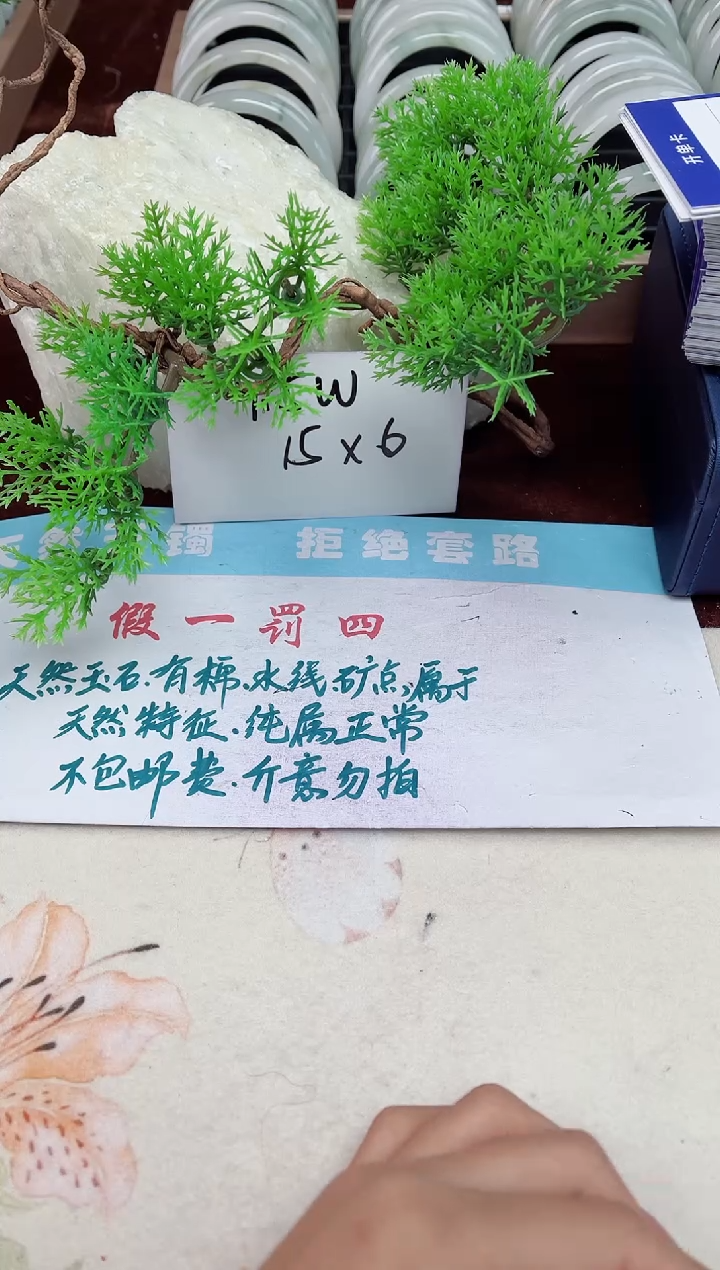 开单卡
W
15 x 6
天然玉镯 拒绝套路
假一罚四
天然玉石.有棉.水线.矿点,属于
天然特征.纯属正常
不包邮费.介意勿拍